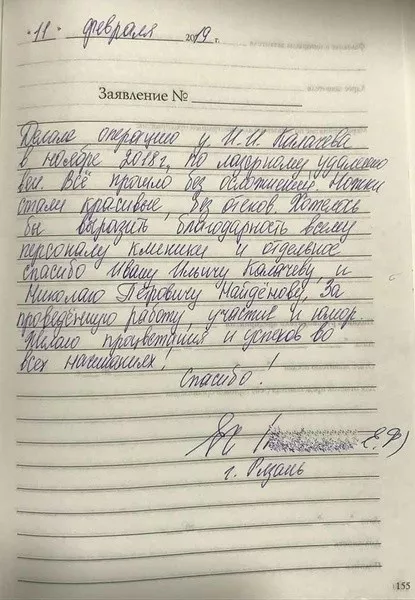 "11" февраля 2019 г.
Заявление №
Делала операцию у И.И. Калачева
в ноябре 2018 г, по лазерному удалению
вен. Всё прошло без осложнений. Ножки
стали красивые, без отеков. Хотелось
бы выразить благодарность всему
персоналу клиники и отдельное
спасибо Ивану Ильичу Калачеву, и
Николаю Петровичу Найдёнову, За
проведённую работу, участие и юмор.
Желаю процветания и успехов во
всех начинаниях!
Спасибо!
Е.Ф)
г. Рязань
155